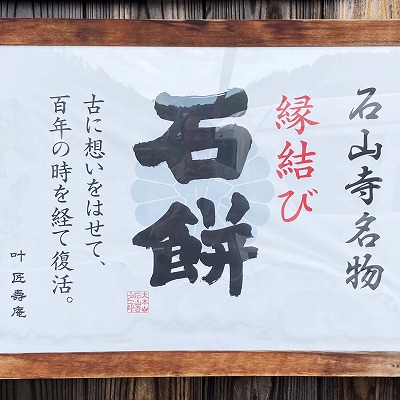 石山寺名物
縁結び
石餅
古に想いをはせて、
百年の時を経て復活。
叶 匠壽庵